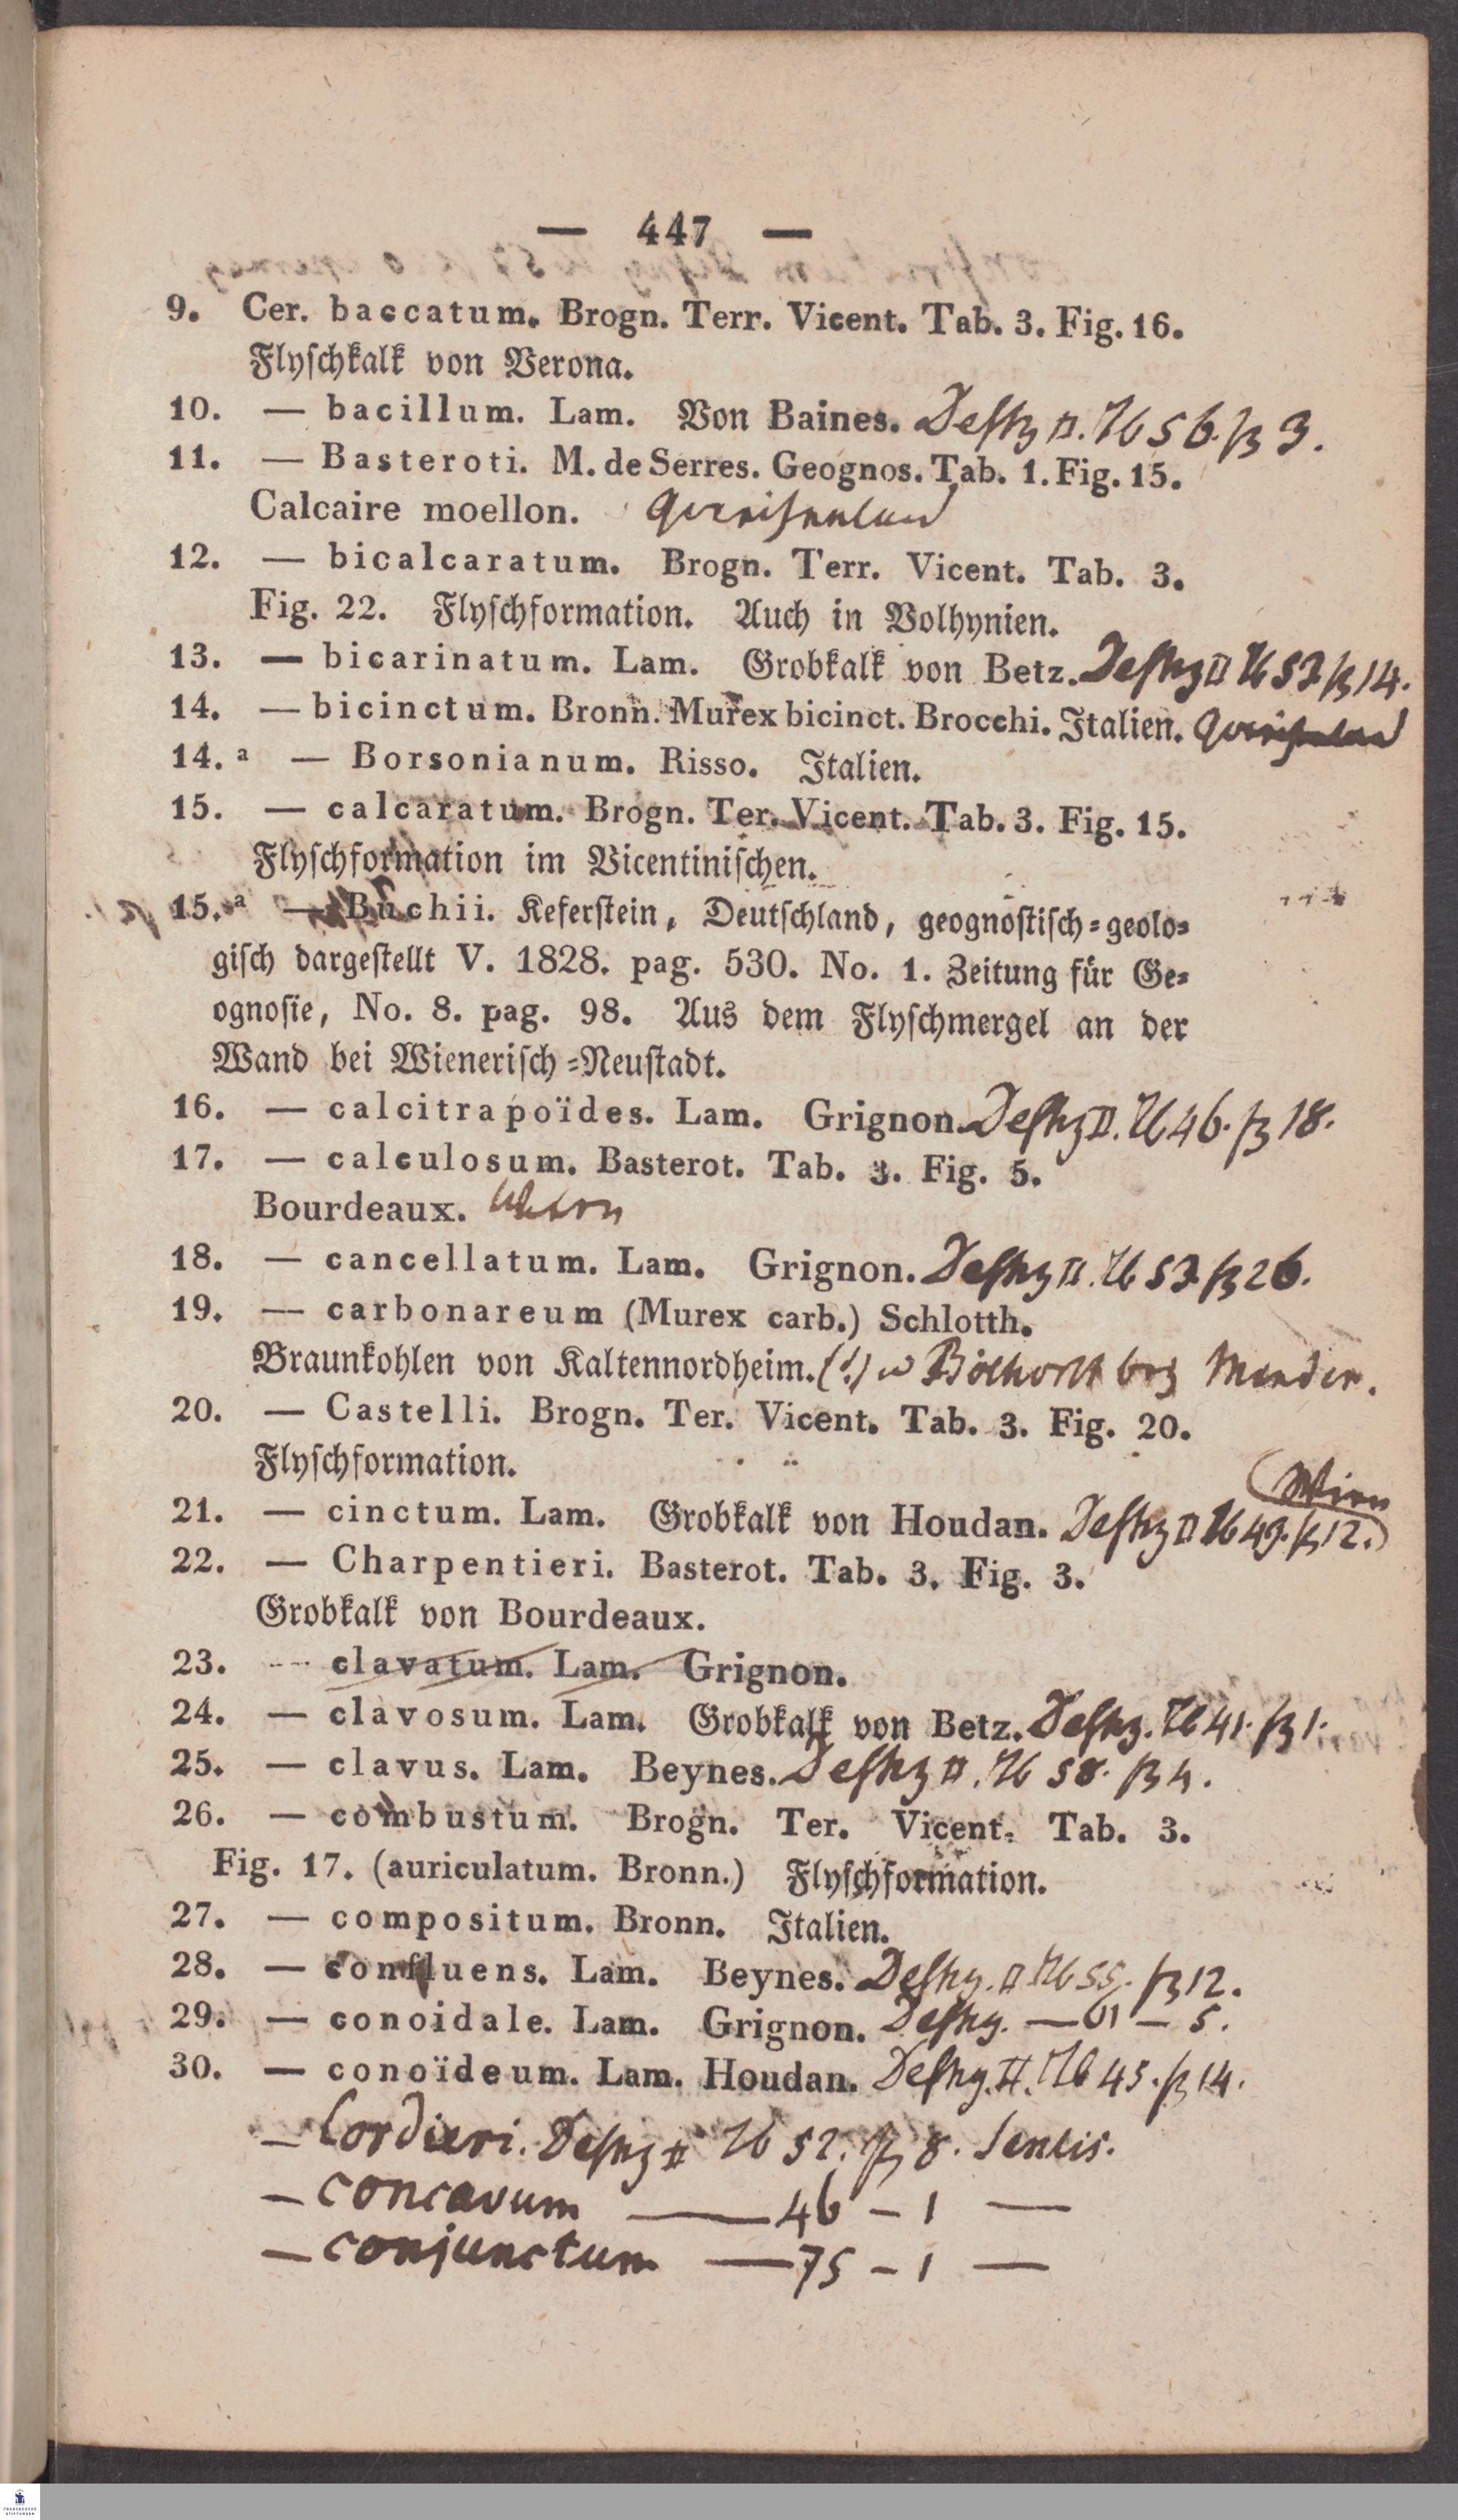 — 447 —
9. Cer. baccatum. Brogn. Terr. Vicent. Tab. 3. Fig. 16.
Flyschkalk von Verona.
10. — bacillum. Lam. Von Baines. Deshy II. Tb 56. fig 3.
11. — Basteroti. M. de Serres. Geognos. Tab. 1. Fig. 15.
Calcaire moellon.
12. — bicalcaratum. Brogn. Terr. Vicent. Tab. 3.
Fig. 22. Flyschformation. Auch in Volhynien.
13. — bicarinatum. Lam. Grobkalk von Betz. Deshy II Tb 52 fig 14.
14. — bicinctum. Bronn. Murex bicinct. Brocchi. Italien.
14.a — Borsonianum. Risso. Italien.
15. — calcaratum. Brogn. Ter. Vicent. Tab. 3. Fig. 15.
Flyschformation im Vicentinischen.
15.a — Buchii. Keferstein, Deutschland, geognostisch-geolo-
gisch dargestellt V. 1828. pag. 530. No. 1. Zeitung für Ge-
ognosie, No. 8. pag. 98. Aus dem Flyschmergel an der
Wand bei Wienerisch-Neustadt.
16. — calcitrapoïdes. Lam. Grignon. Deshy II. Tb 46. fig 18.
17. — calculosum. Basterot. Tab. 3. Fig. 5.
Bourdeaux.
18. — cancellatum. Lam. Grignon. Deshy II. Tb 53 fig 26.
19. — carbonareum (Murex carb.) Schlotth.
Braunkohlen von Kaltennordheim. (!) Bölhorst bey Minden.
20. — Castelli. Brogn. Ter. Vicent. Tab. 3. Fig. 20.
Flyschformation.
(Wien
21. — cinctum. Lam. Grobkalk von Houdan. Deshy II Tb 49. fig 12.)
22. — Charpentieri. Basterot. Tab. 3. Fig. 3.
Grobkalk von Bourdeaux.
23. — clavatum. Lam. Grignon.
24. — clavosum. Lam. Grobkalk von Betz. Deshy. Tb 41. fig 1.
25. — clavus. Lam. Beynes. Deshy II. Tb 58. fig 4.
26. — combustum. Brogn. Ter. Vicent. Tab. 3.
Fig. 17. (auriculatum. Bronn.) Flyschformation.
27. — compositum. Bronn. Italien.
28. — confluens. Lam. Beynes. Deshy. II Tb 55. fig 12.
29. — conoidale. Lam. Grignon. Deshy. — 61 — 5.
30. — conoïdeum. Lam. Houdan. Deshy. II. Tb 45. fig 14.
— Cordieri. Deshy II Tb 52. fig 8. Senlis.
— concavum — 46 — 1 —
— conjunctum — 75 — 1 —
FRANCKESCHE
STIFTUNGEN